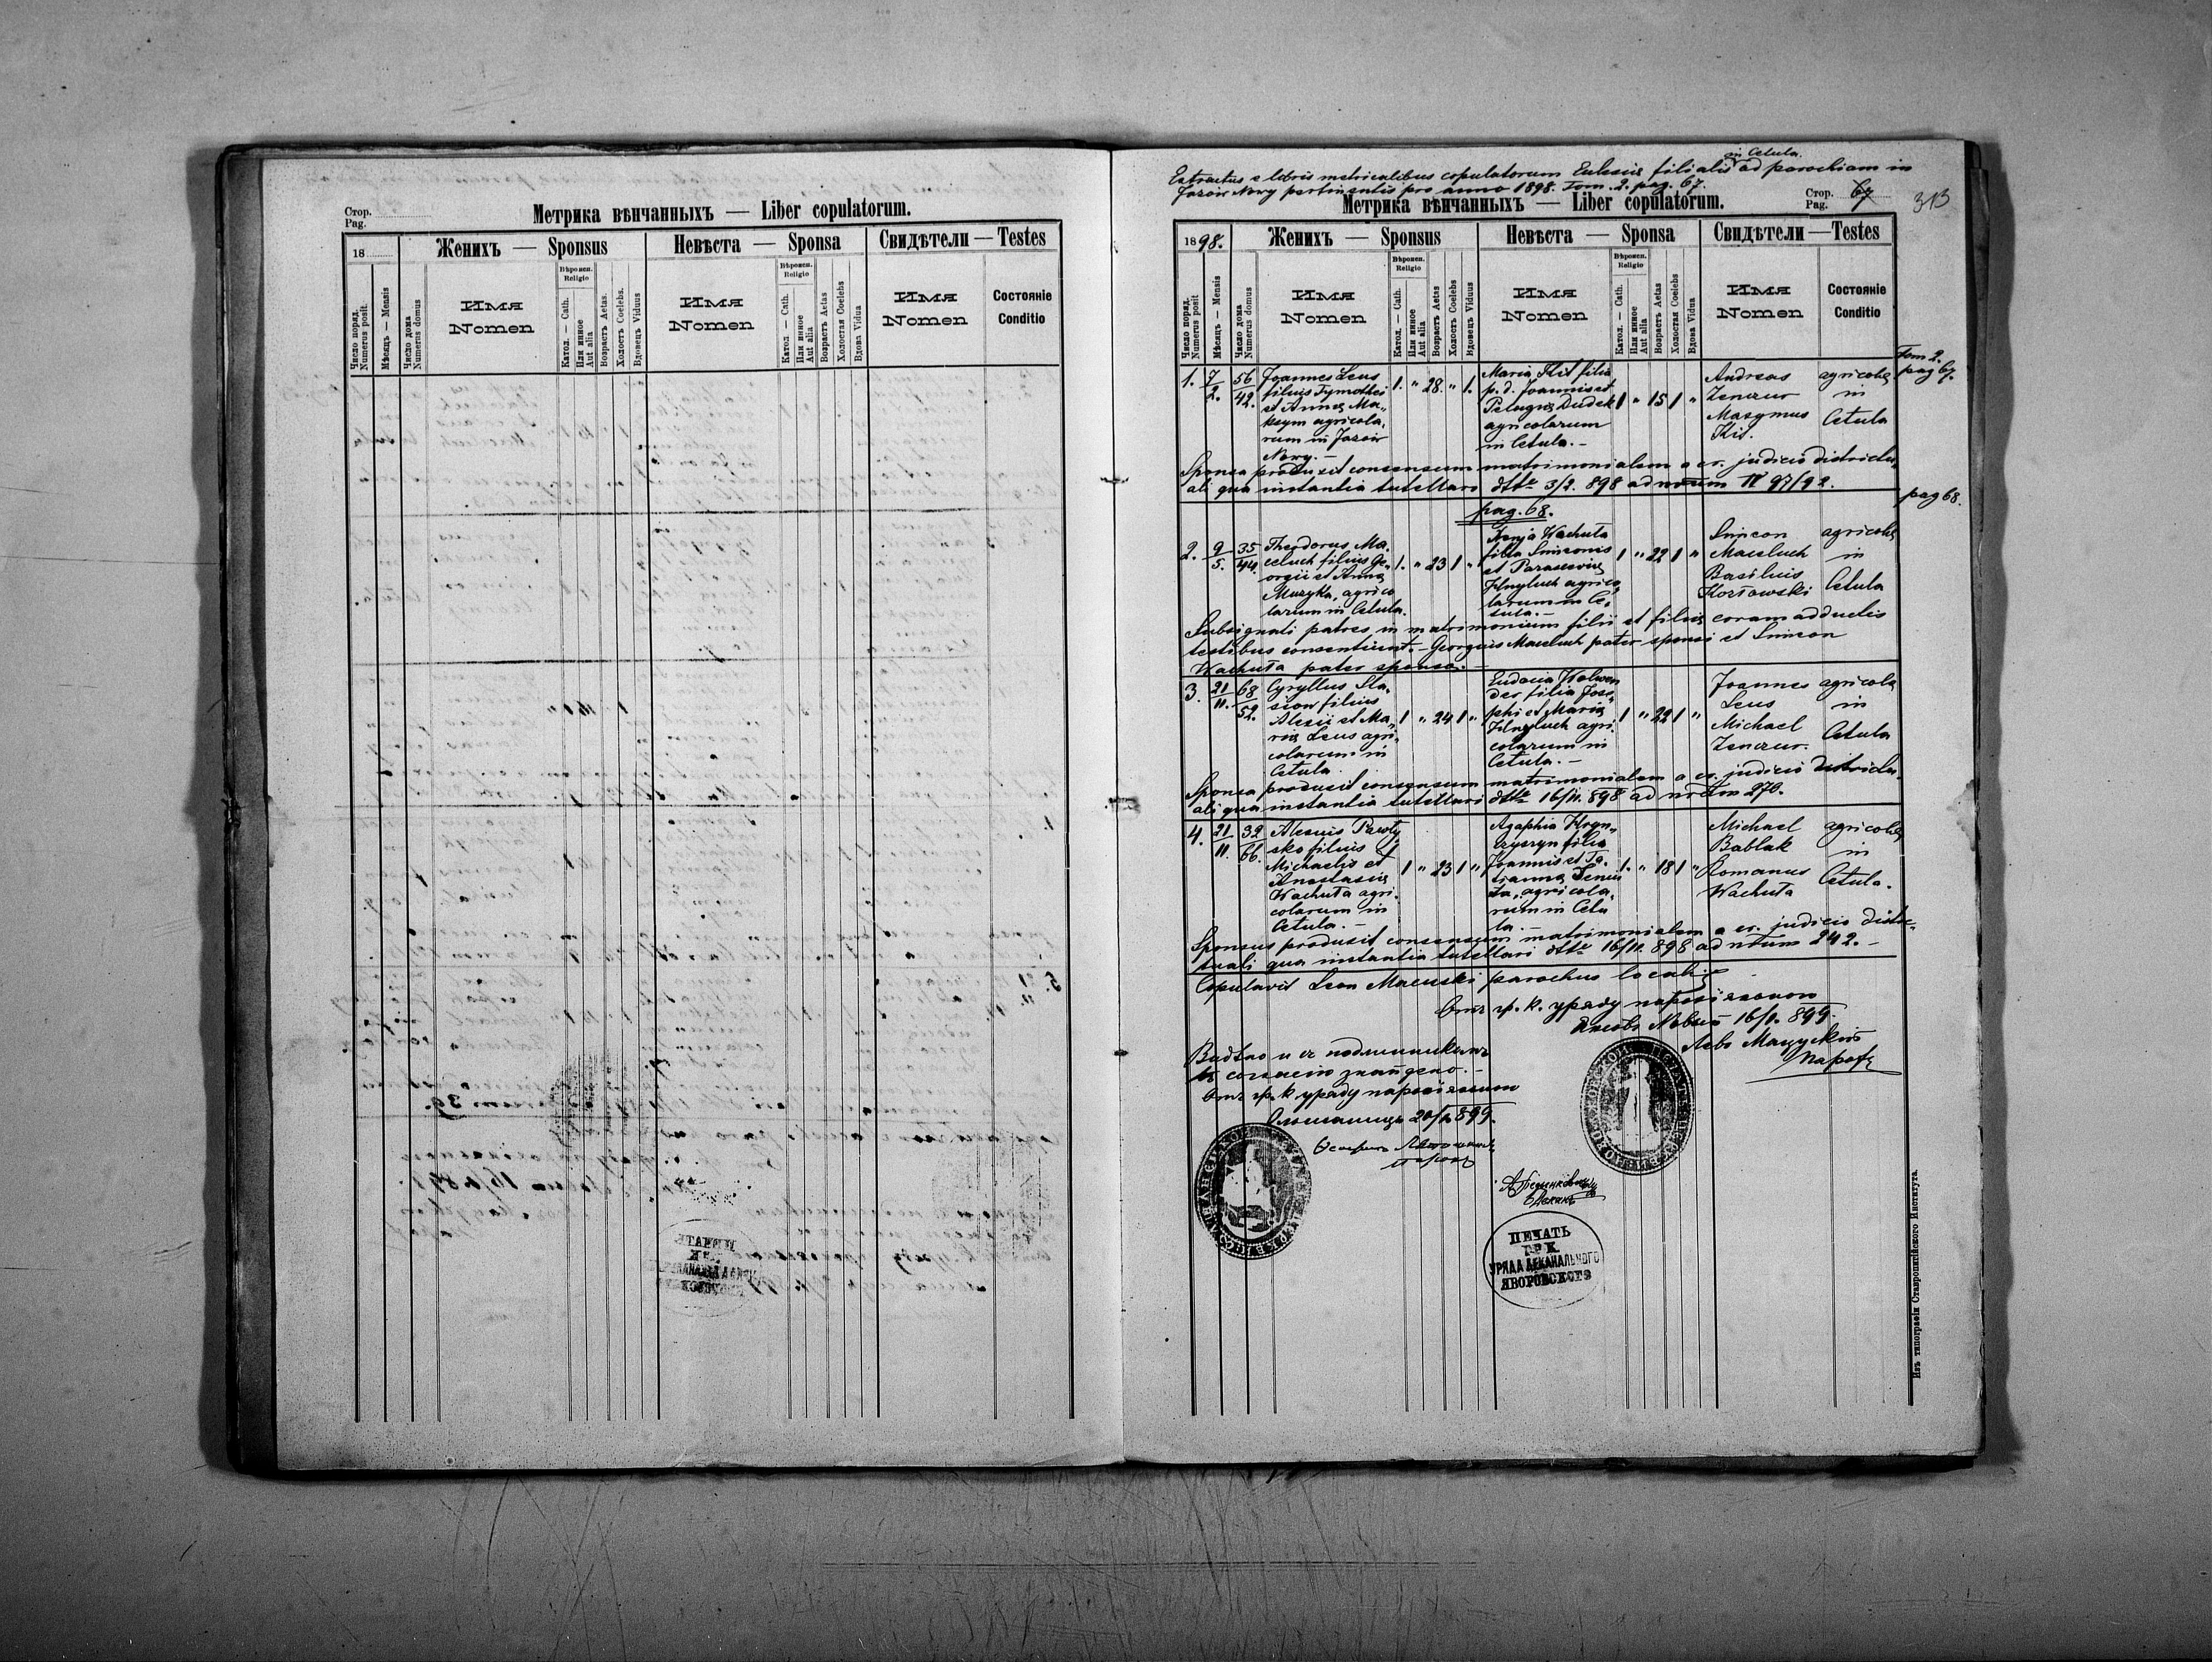 Стор.
Pag.
Метрика вѣнчанныхъ — Liber copulatorum.
18
Женихъ — Sponsus
Невѣста — Sponsa
Свидѣтели — Testes
Число поряд.
Numerus posit.
Мѣсяцъ — Mensis
Число дома
Numerus domus
Имя
Nomen
Вѣроисп.
Religio
Катол. — Cath.
Или инное
Aut alia
Возрастъ Aetas.
Холостъ Coelebs.
Вдовецъ Viduus
Имя
Nomen
Вѣроисп.
Religio
Катол. — Cath.
Или инное
Aut alia
Возрастъ Aetas
Холостая Coelebs
Вдова Vidua
Имя
Nomen
Состояніе
Conditio
in Cetula.
Extractus e libris metricalibus copulatorum Eclesiae filialis ad parochiam in
Jazow Nowy pertinentis pro anno 1898. Tom. 2. pag. 67.
Метрика вѣнчанныхъ — Liber copulatorum.
Стор.
Pag. 67
313
1898.
Женихъ — Sponsus
Невѣста — Sponsa
Свидѣтели — Testes
Число поряд.
Numerus posit
Мѣсяцъ — Mensis
Число дома
Numerus domus
Имя
Nomen
Вѣроисп.
Religio
Катол. — Cath.
Или инное
Aut alia
Возрастъ Aetas
Холостъ Coelebs
Вдовецъ Viduus
Имя
Nomen
Вѣроисп.
Religio
Катол. — Cath.
Или инное
Aut alia
Возрастъ Aetas
Холостая Coelebs
Вдова Vidua
Имя
Nomen
Состояніе
Conditio
Tom 2.
pag 67.
1. 7/2. 56/42.
Joannes Leus
filius Tymothei
et Anna Ma„
ksym agricola„
rum in Jazow
Nowy. —
1. " 28. " 1.
Maria Kit filia
p. d. Joannis et
Pelagia Dudek
agricolarum
in Cetula. —
1 " 15 1 "
Andreas
Maxymus
Kit.
agricolae
in
Cetula
Sponsa produxit consensum matrimonialem a cr. judicio districtu„
ali qua instantia tutellari dtto 3/2. 898 ad IV 97/92.
pag. 68.
pag 68.
2. 9/5. 35/44.
Theodorus Ma„
celuch filius Ge„
orgii et Anna
Muzyka, agrico
larum in Cetula.
1. " 23 1 "
Xenja Wachuta
filia Simeonis
et Parascevia
Hnyluch agrico„
larum in Ce„
tula. —
1 " 22 1 "
Simeon
Maceluch
Basilius
Kozłowski
agricolae
in
Cetula
Subsignati patres in matrimonium filii et filiae coram adductis
testibus consentiunt. — Georgius Maceluch pater sponsi et Simeon
Wachuta pater sponsa. —
3. 21/11. 68/52.
Cyryllus Sta„
siow filius
Alexii et Ma„
ria Leus agri„
colarum in
Cetula
1 " 24 1 "
Eudocia
der filia Jose„
phi et Maria
Hnyluch agri„
colarum in
Cetula. —
1 " 22 1 "
Joannes
Leus
Michael
agricolae
in
Cetula
Sponsa produxit consensum matrimonialem a cr. judicio districtu„
ali qua instantia tutellari dtto 16/11. 898 ad 270.
4. 21/11. 32/66.
Alexius Pawły
sko filius
Michaelis et
Anastasia
Wachuta agri„
colarum in
Cetula. —
1 " 23 1 "
Agaphia Hryn„
filia
Joannis et Ta„
tianna
agricola„
rum in Cetu
la. —
1. " 18 1 "
Michael
Bablak
Romanus
Wachuta
agricolae
in
Cetula.
Sponsus produxit consensum matrimonialem a cr. judicio distri„
ctuali qua instantia tutellari dtto 16/11. 898 ad 242. —
Copulavit Leon Macuski parochus localis
Отъ гр. к. уряду парохіяльного
16/1. 899.
Левъ Мацускій
парохъ
Видѣно и съ подлинникомъ
въ согласіи знайдено. —
Отъ гр. к. уряду парохіяльного
20/1 899.
Деканъ
ПЕЧАТЬ
ГР. К.
УРЯДА ДЕКАНАЛЬНОГО
ЯВОРОВСКОГО
Изъ типографіи Ставропигійского Института.